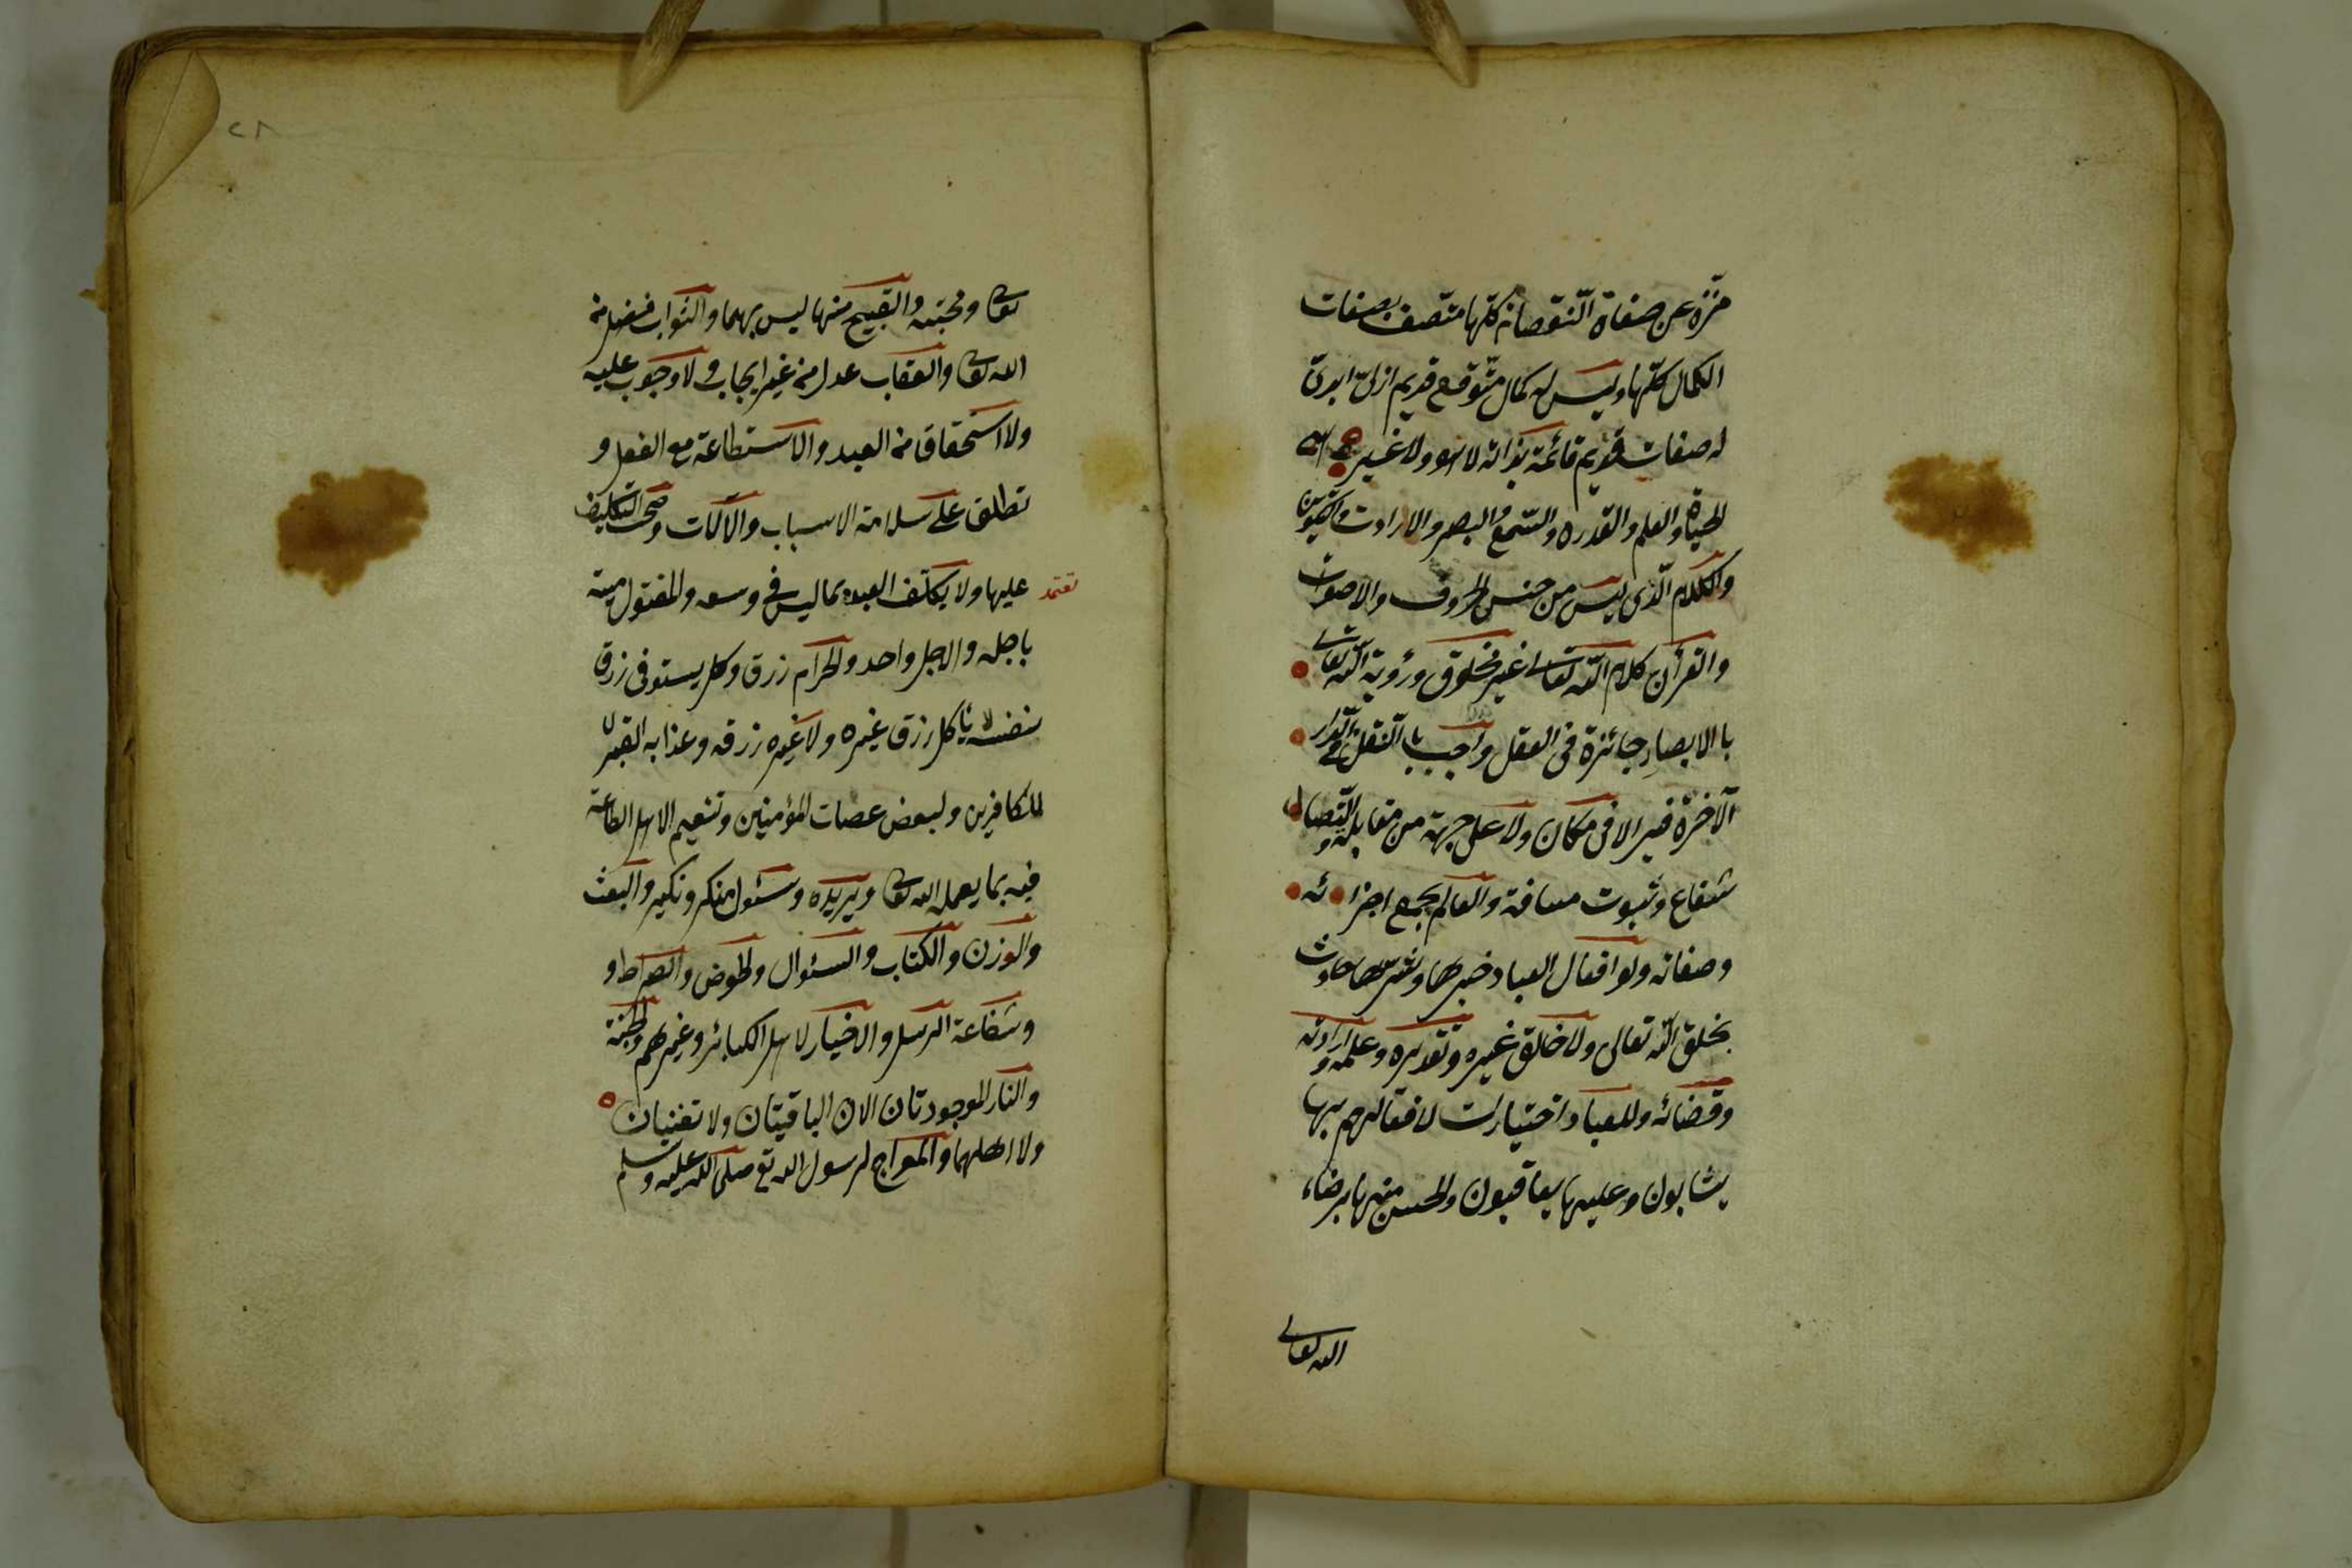 منزّه عن صفاة النّقصان كلّها متّصف بصفات
الكمال كلّها وليس له كمال متّوقع قديم ازلىّ ابدىّ
له صفات قديم قائمة بذاته لا هو ولا غيره هى
الحياة والعلم والقدره والسّمع والبصر والارادت والتكوين
والكلام الّذى ليس من جنس الحروف والاصوات
والقرآن كلام اللّه تعالى غير مخلوق ورؤية اللّه تعالى
بالابصار جائزة فى العقل واجب باالنّقل فى الدّار
الآخرة فيرا لا فى مكان ولا على جهة من مقابلة و اتّصال
شعاع وثبوت مسافة والعالم بجميع اجزائه
وصفاته ولو افعال العباد خيرها وشرّها حادث
بخلق اللّه تعالى ولا خالق غيره وتقديره وعلمه و ارادته
وقضائه وللعباد اختيارات لافعالهم بها
يثابون وعليها يعاقبون والحسن منها برضاء
اللّه تعالى
٢٨
تعالى ومحبّته والقبيح منها ليس بهما والثّواب فضل من
اللّه تعالى والعقاب عدل من غير ايجاب ولا وجوب عليه
ولا استحقاق من العبد والاستطاعة مع الفعل و
تطلق على سلامة الاسباب والآلات وصحّت التكليف
تعتمد
عليها ولا يكلّف العبد بما ليس فى وسعه والمقتول ميت
باجله والاجل واحد والحرام رزق وكل يستوفى رزق
نفسه لا ياكل رزق غيره ولا غيره رزقه وعذابه القبر
للكافرين ولبعض عصات المؤمنين وتنعيم الاهل الطاعة
فيه بما يعمله اللّه تعالى ويريده وسئول منكر ونكير والبعث
والوزن والكتاب والسئوال والحوض والصراط و
وشفاعة الرسل والاخيار لاهل الكبائر وغيرهم والجنّة
والنار الموجودتان الان الباقيتان ولا تفنيان
ولا اهلهما والمعراج لرسول اللّه تع صلى اللّه عليه وسلم